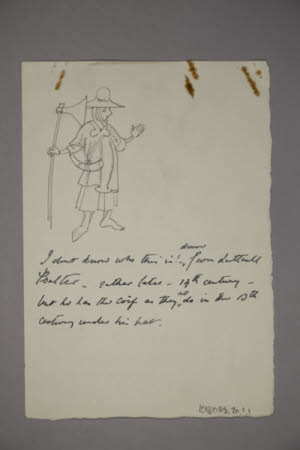 drawn
I don't know who this is! from Luttrell
Psalter – rather late – 14th century –
but he has the coif as they all do in the 13th
century under his hat.